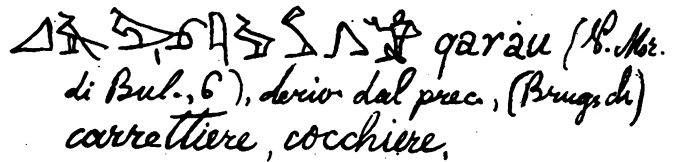 qaráu (P. Mor.
di Bul., 6), deriv. dal prec., (Brugsch)
carrettiere, cocchiere.